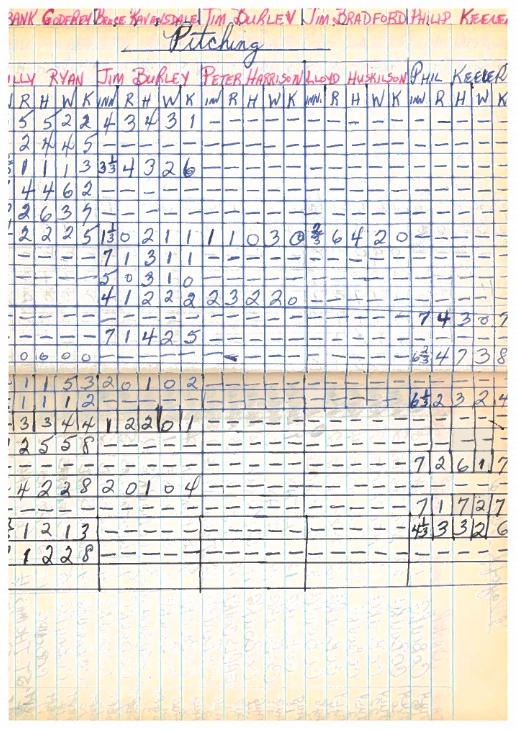 ANK GODFREY BRUCE RAVENSDALE JIM BURLEY JIM BRADFORD PHILIP KEELER
Pitching
LLY RYAN JIM BURLEY PETER HARRISON LLOYD HUSKILSON PHIL KEELER
R H W K INN R H W K INN R H W K INN. R H W K INN R H W K
5 5 2 2 4 3 4 3 1 - - - - - - - - - - - - - - -
2 4 4 5 - - - - - - - - - - - - - - - - - - - -
1 1 1 3 3⅓ 4 3 2 6 - - - - - - - - - - - - - - -
4 4 6 2 - - - - - - - - - - - - - - - - - - - -
2 6 3 7 - - - - - - - - - - - - - - - - - - - -
2 2 2 5 1⅓ 0 2 1 1 1 1 0 3 0 ⅔ 6 4 2 0 - - - - -
- - - - 7 1 3 1 1 - - - - - - - - - - - - - - -
- - - - 5 0 3 1 0 - - - - - - - - - - - - - - -
- - - - 4 1 2 2 2 2 3 2 2 0 - - - - - - - - - -
- - - - - - - - - - - - - - - - - - - 7 4 3 0 7
- - - - 7 1 4 2 5 - - - - - - - - - - - - - - -
0 0 0 0 - - - - - - - - - - - - - - - 6⅔ 4 7 3 8
1 1 5 3 2 0 1 0 2 - - - - - - - - - - - - - - -
1 1 1 2 - - - - - - - - - - - - - - - 6⅓ 2 3 2 4
3 3 4 4 1 2 2 0 1 - - - - - - - - - - - - - -
2 5 5 8 - - - - - - - - - - - - - - - - - - - -
- - - - - - - - - - - - - - - - - - - 7 2 6 1 7
4 2 2 8 2 0 1 0 4 - - - - - - - - - - - - - - -
- - - - - - - - - - - - - - - - - - - 7 1 7 2 7
1 2 1 3 - - - - - - - - - - - - - - - 4⅓ 3 3 2 6
1 2 2 8 - - - - - - - - - - - - - - - - - - - -